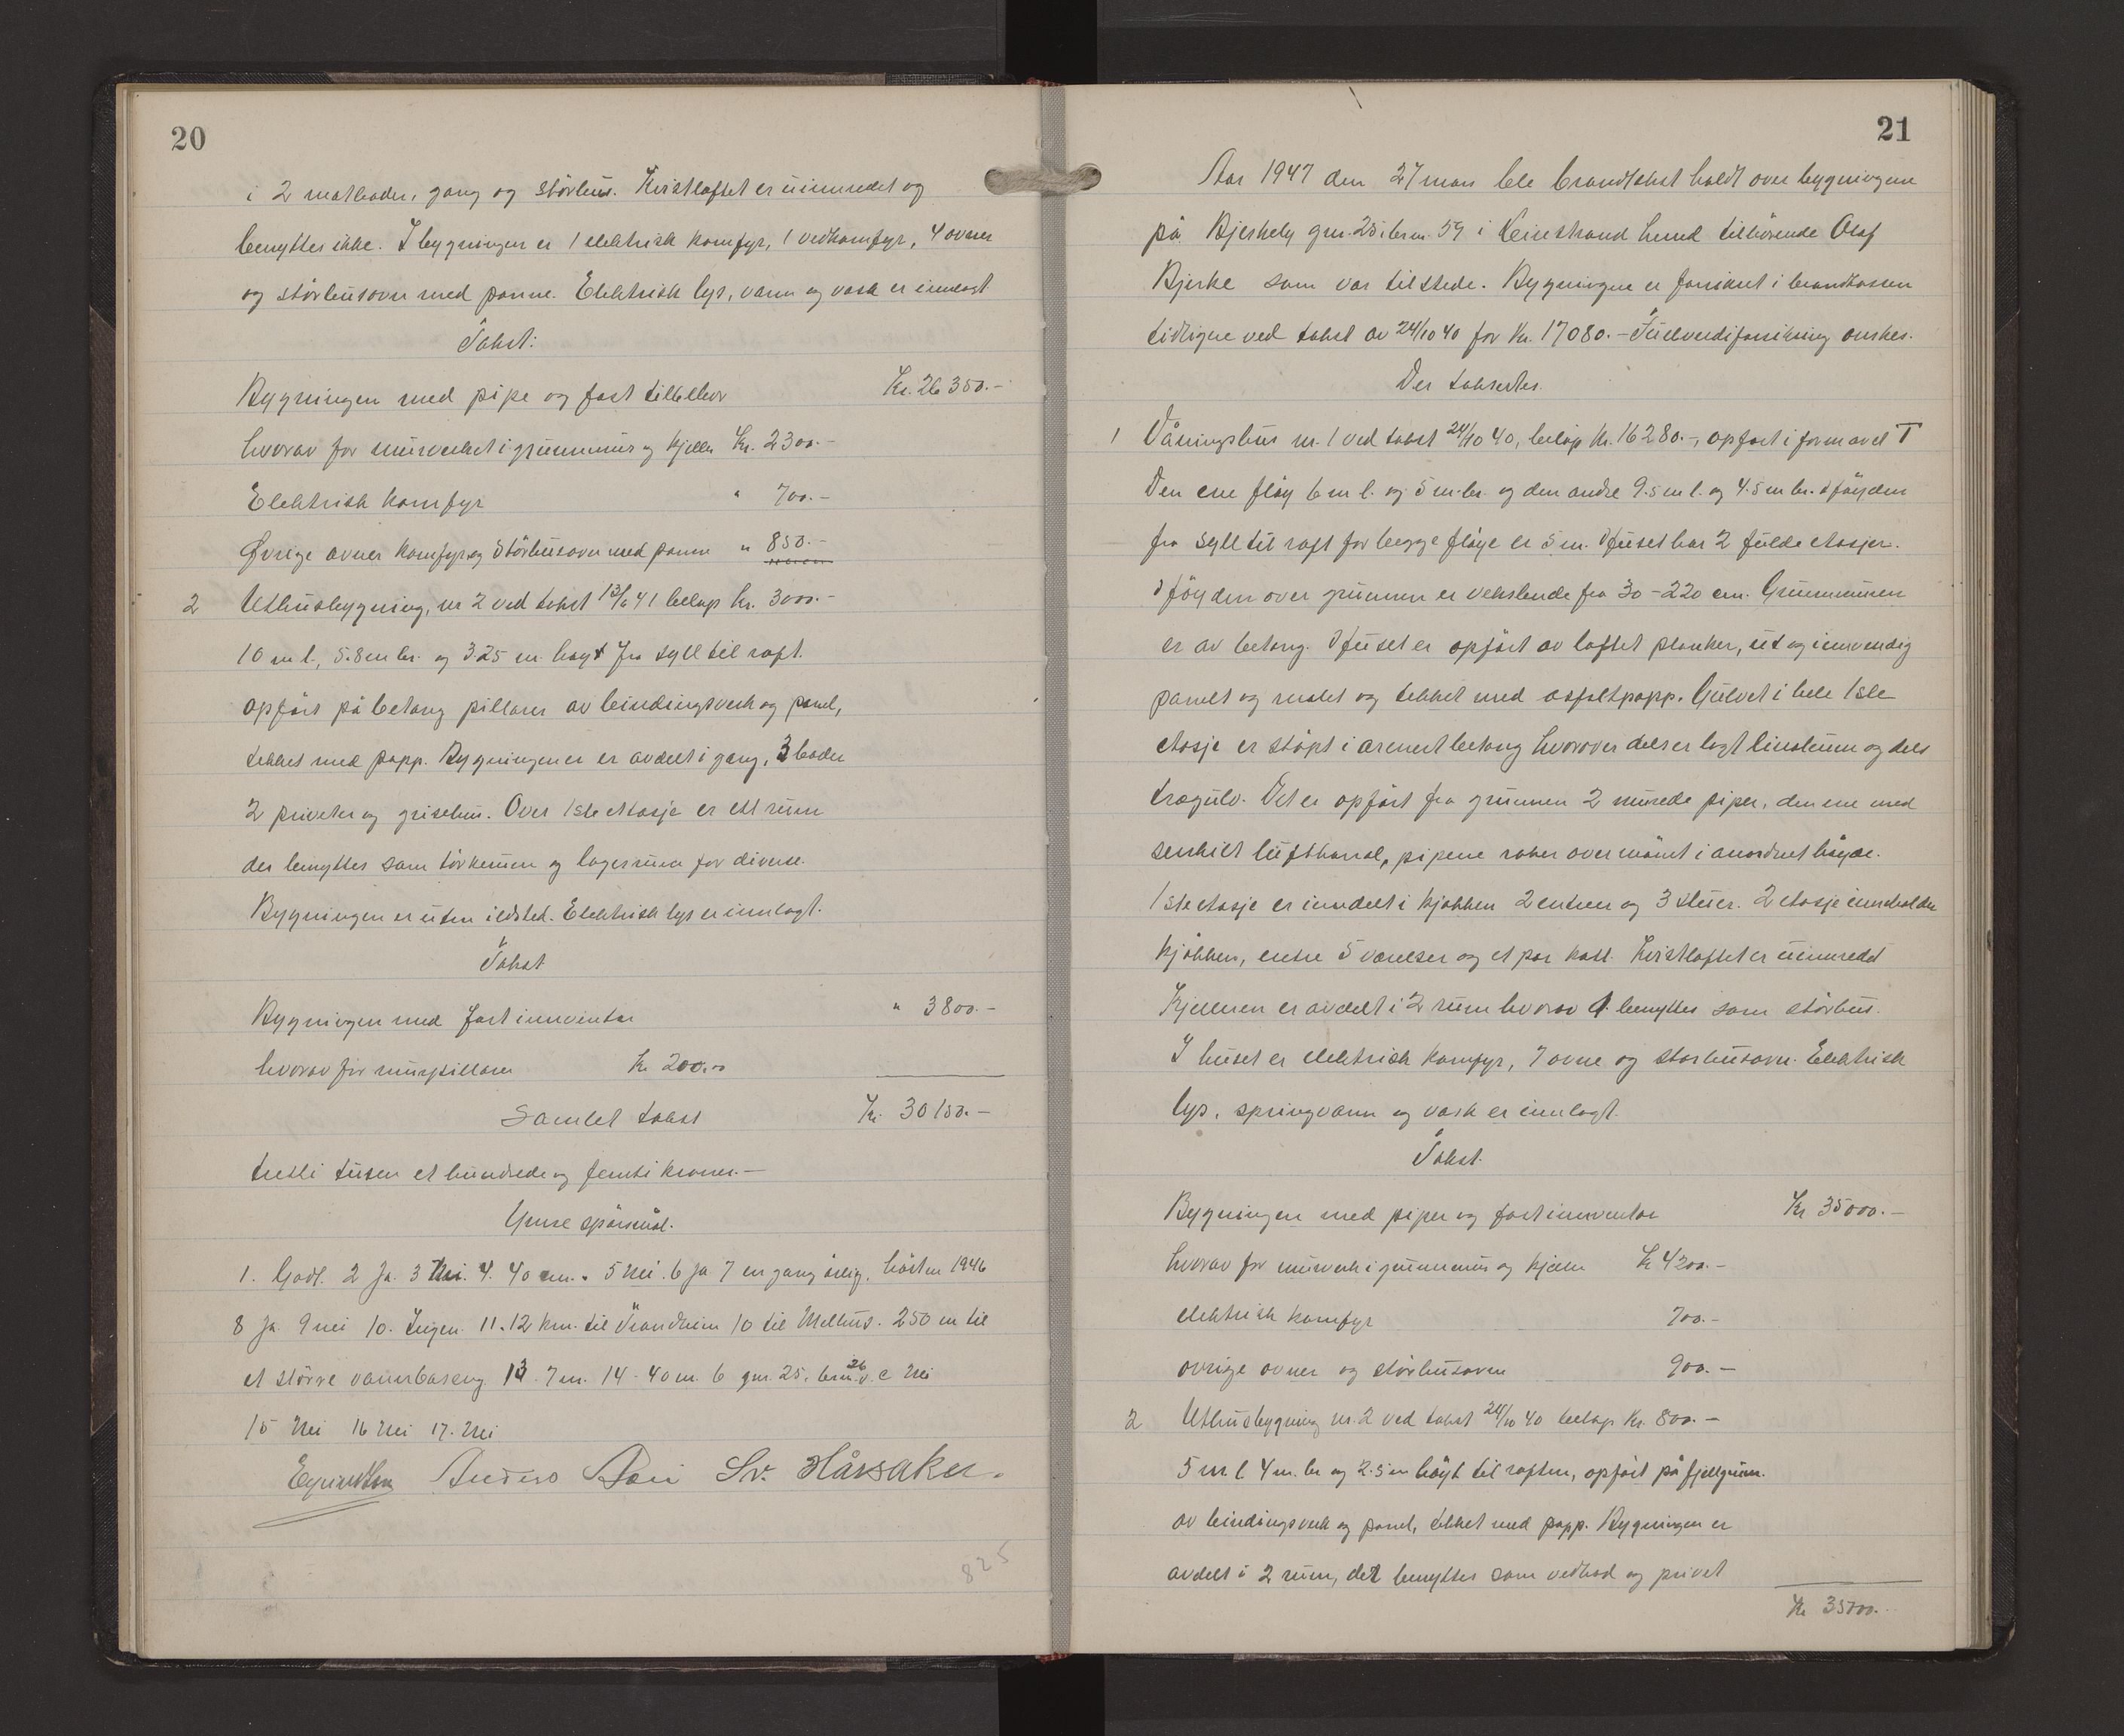 20
i 2 matboder, gang og störhus. Kvistloftet er uinnredet og
benyttes ikke. I bygningen er 1 elektrisk komfyr, 1 vedkomfyr, 4 ovner
og störhusovn med panne. Elektrisk lys, vann og vask er innlagt
Takst:
Bygningen med pipe og fast tilbehor Kr. 26 350.-
hvorav for murverket i grunnmur og kjeller Kr. 2300.-
Elektrisk komfyr " 700.-
Øvrige ovner komfyr og störhusovn med panne " 850.-
2 Uthusbygning, nr 2 ved takst 13/6 41 belöp Kr. 3000.-
10 m l., 5.8 m br. og 3.25 m. høyt fra syll til raft.
opfört på betong pillarer av bindingsverk og panel,
tekket med papp. Bygningen er er avdelt i gang, 3 boder
2 priveter og grisehus. Over 1ste etasje er ett rum
der benyttes som törkerum og lagerrum for diverse.
Bygningen er uten ildsted. Elektrisk lys er innlagt.
Takst
Bygningen med fast innventar " 3800.-
hvorav for murpillarer Kr 200.00
Samlet takst Kr. 30150.-
tretti tusen et hundrede og femti kroner.-
Ymse spörsmål.
1. Godt. 2 Ja. 3 Nei. 4. 40 cm. 5 Nei. 6 Ja 7 en gang årlig, hösten 1946
8 Ja 9 nei 10. Ingen. 11. 12 km. til Trondheim 10 til Melhus. 250 m til
et större vannbaseng. 13. 7 m. 14. 40 m. b gnr. 25. brnr. 26 c Nei
15 Nei 16 Nei 17. Nei
Anders Sv. Hårsaker.
825
21
Aar 1947 den 27 mars ble brandtakst holdt over bygningene
på Bjerkely gnr. 25, brnr. 59 i Leinstrand herred tilhörende Olaf
Bjerke som var tilstede. Bygningene er forsikret i brandkassen
tidligere ved takst av 24/10 40 for Kr. 17080.- Fullverdiforsikring ønskes.
Der takseres.
1 Våningshus nr. 1 ved takst 24/10 40, belöp Kr. 16280.-, opfört i form av et T
Den ene flöy 6 m l. og 5 m. br. og den andre 9.5 m l. og 4.5 m br. Höyden
fra syll til raft for begge flöye er 5 m. Huset har 2 fulde etasjer.
Höyden over grunnen er vekslende fra 30-220 cm. Grunnmuren
er av betong. Huset er opfört av laftet planker, ut og innvendig
panelt og malet og tekket med asfaltpapp. Gulvet i hele 1ste
etasje er stöpt i armert betong hvorover dels er lagt linoleum og dels
tregulv. Det er opfört fra grunnen 2 murede piper, den ene med
luftkanal, pipene raker over mönet i anordnet höyde.
1ste etasje er inndelt i kjökken 2 entreer og 3 stuer. 2 etasje inneholder
kjökken, entre 5 værelser og et par kott. Kvistloftet er uinnredet
Kjelleren er avdelt i 2 rum hvorav 1 benyttes som störhus.
I huset er elektrisk komfyr, 7 ovne og störhusovn. Elektrisk
lys, springvann og vask er innlagt.
Takst.
Bygningen med piper og fast innventar Kr 35000.-
hvorav for murverk i grunnmur og kjeller Kr 4200.-
elektrisk komfyr 700.-
øvrige ovner og störhusovn 900.-
2 Uthusbygning nr. 2 ved takst 24/10 40 belöp Kr. 800.-
5 m l. 4 m. br og 2.5 m höyt til raften, opfört på fjellgrunn.
av bindingsverk og panel, tekket med papp. Bygningen er
avdelt i 2 rum, det benyttes som vedbod og privet
Kr 35000.-